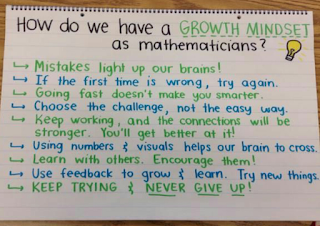 How do we have a GROWTH MINDSET
as mathematicians?
Mistakes light up our brains!
If the first time is wrong, try again.
Going fast doesn't make you smarter.
Choose the challenge, not the easy way.
Keep working, and the connections will be
stronger. You'll get better at it!
Using numbers & visuals helps our brain to cross.
Learn with others. Encourage them!
Use feedback to grow & learn. Try new things.
KEEP TRYING & NEVER GIVE UP!